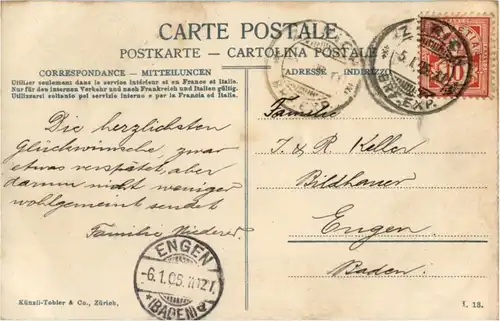 CARTE POSTALE
POSTKARTE — CARTOLINA POSTALE
CORRESPONDANCE - MITTEILUNGEN
ADRESSE INDIRIZZO
Utilizer seulement dans le service intérieur et en France et Italie.
Nur für den internen Verkehr und nach Frankreich und Italien gültig.
Utilizzarsi soltanto pel servizio interno e par la Francia et Italia.
Die herzlichsten
Glückwünsche, zwar
etwas verspätet, aber
darum nicht weniger
wohlgemeint sendet
Familie
Familie
J. & R Keller
Bildhauer
Engen
Baden.
10
BRF. EXP.
ENGEN
-6.1.06.
(BADEN)
Künzli-Tobler & Co., Zürich.
I. 18.